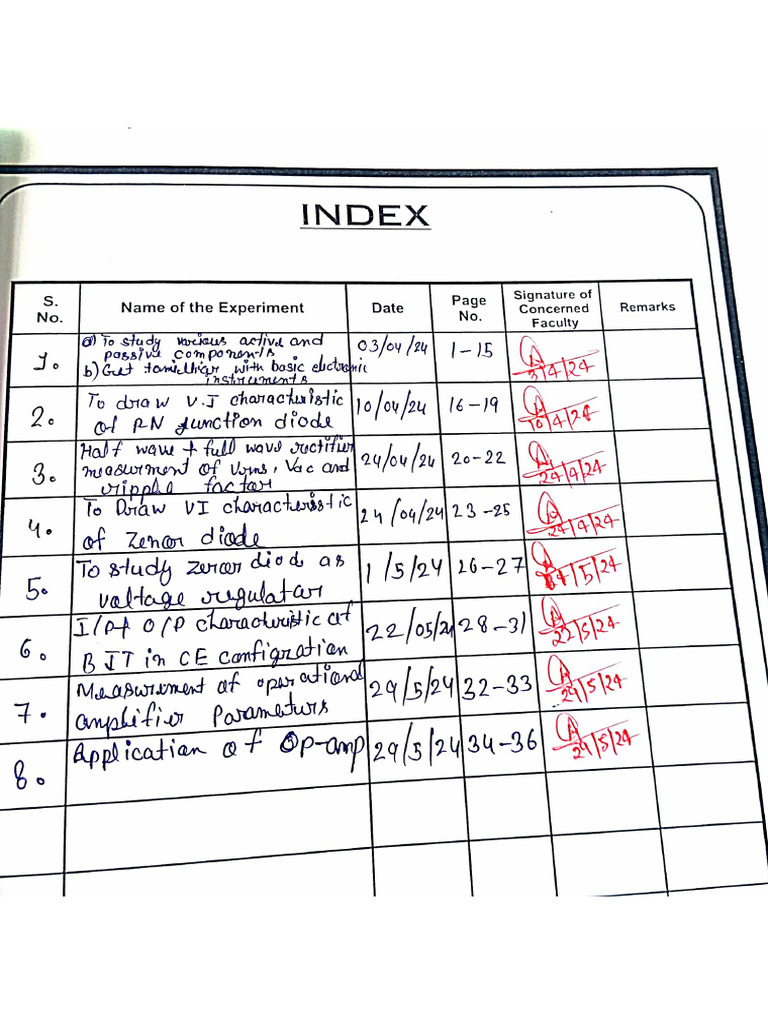 INDEX
S. No. Name of the Experiment Date Page No. Signature of Concerned Faculty Remarks
1. a) To study various active and 03/04/24 1-15 3/4/24
passive components
b) Get familliar with basic electronic
instruments
2. To draw V.I characteristic 10/04/24 16-19 10/4/24
of P-N junction diode
3. Half wave + full wave rectifier 24/04/24 20-22 24/4/24
measurment of Vrms, Vac and
ripple factor
4. To Draw VI characteristic 24/04/24 23-25 24/4/24
of Zenor diode
5. To study zenor diod as 1/5/24 26-27 /5/24
voltage regulatar
6. I/P O/P characteristic of 22/05/24 28-31 22/5/24
BJT in CE configration
7. Measurement of operational 29/5/24 32-33 29/5/24
amplifier Parameturs
8. Application of Op-amp 29/5/24 34-36 29/5/24